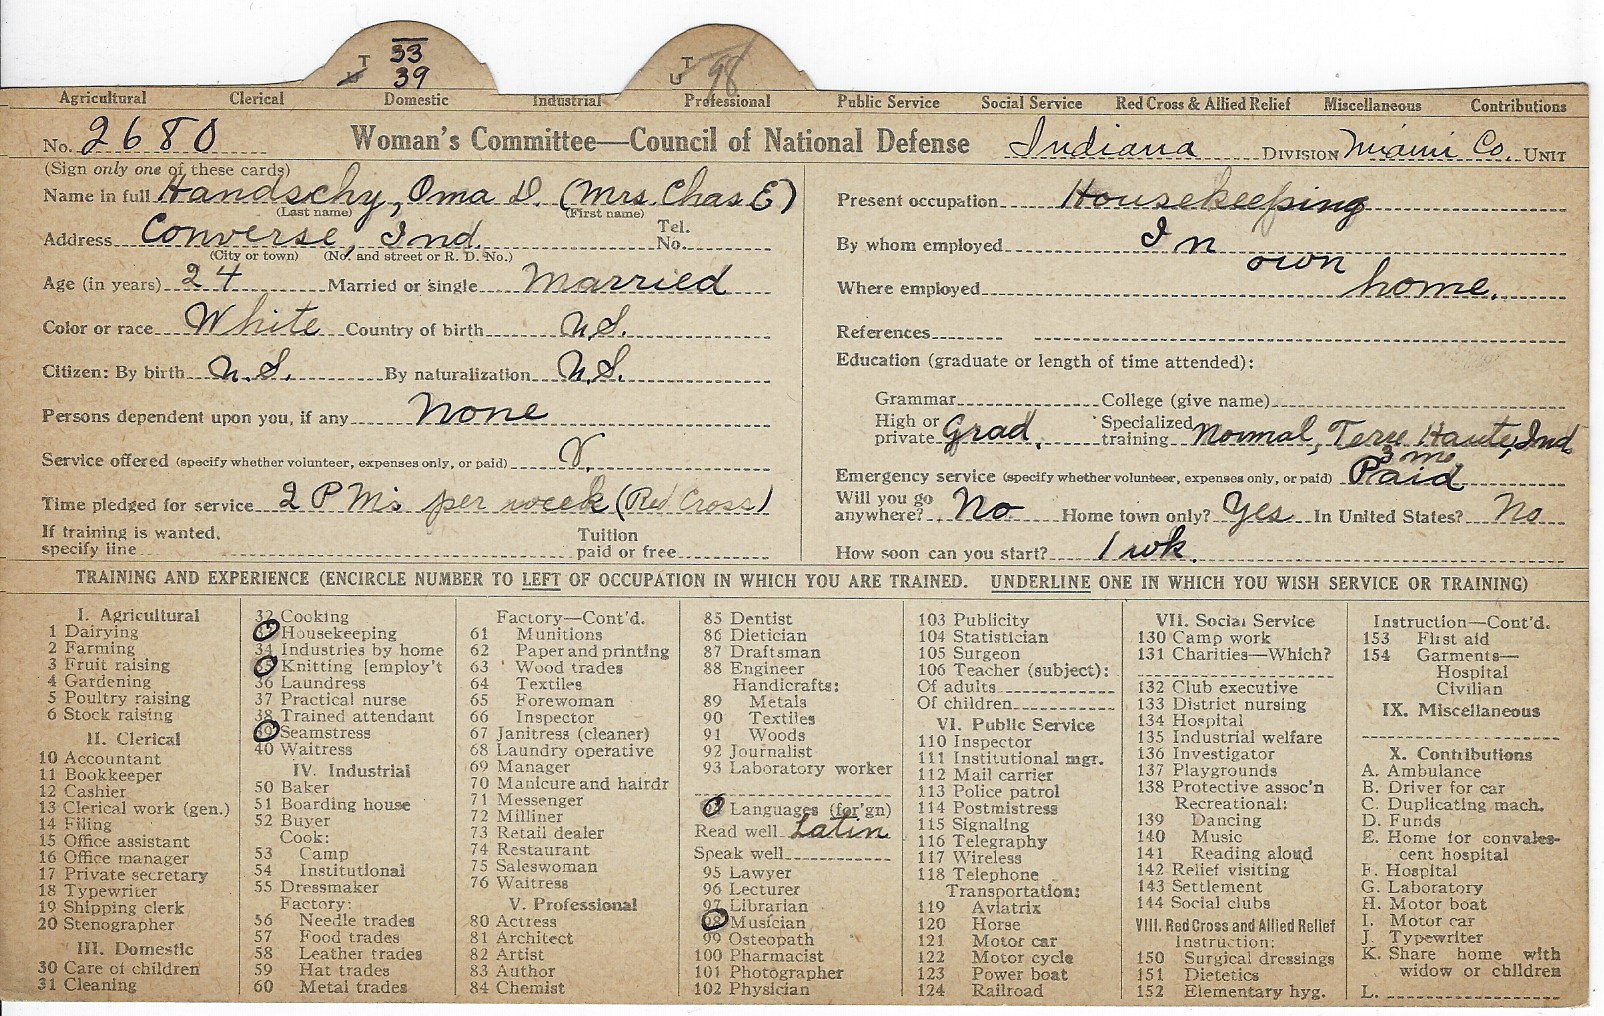 T 33
U 39
T
U 98
Agricultural Clerical Domestic Industrial Professional Public Service Social Service Red Cross & Allied Relief Miscellaneous Contributions
No. 2680 Woman's Committee—Council of National Defense Indiana DIVISION Miami Co. UNIT
(Sign only one of these cards)
Name in full Handschy, Oma D. (Mrs. Chas E)
(Last name) (First name)
Address Converse, Ind. Tel. No.
(City or town) (No. and street or R. D. No.)
Age (in years) 24 Married or single Married
Color or race White Country of birth U.S.
Citizen: By birth U.S. By naturalization U.S.
Persons dependent upon you, if any None
Service offered (specify whether volunteer, expenses only, or paid) V.
Time pledged for service 2 P M's per week (Red Cross)
If training is wanted, specify line Tuition paid or free
Present occupation Housekeeping
By whom employed In own
Where employed home.
References
Education (graduate or length of time attended):
Grammar College (give name)
High or private Grad. Specialized training Normal, Terre Haute, Ind
3 mo
Emergency service (specify whether volunteer, expenses only, or paid) Paid
Will you go anywhere? No Home town only? Yes In United States? No
How soon can you start? 1 wk.
TRAINING AND EXPERIENCE (ENCIRCLE NUMBER TO LEFT OF OCCUPATION IN WHICH YOU ARE TRAINED. UNDERLINE ONE IN WHICH YOU WISH SERVICE OR TRAINING)
I. Agricultural
1 Dairying
2 Farming
3 Fruit raising
4 Gardening
5 Poultry raising
6 Stock raising
II. Clerical
10 Accountant
11 Bookkeeper
12 Cashier
13 Clerical work (gen.)
14 Filing
15 Office assistant
16 Office manager
17 Private secretary
18 Typewriter
19 Shipping clerk
20 Stenographer
III. Domestic
30 Care of children
31 Cleaning
32 Cooking
33 Housekeeping
34 Industries by home
35 Knitting [employ't
36 Laundress
37 Practical nurse
38 Trained attendant
39 Seamstress
40 Waitress
IV. Industrial
50 Baker
51 Boarding house
52 Buyer
Cook:
53 Camp
54 Institutional
55 Dressmaker
Factory:
56 Needle trades
57 Food trades
58 Leather trades
59 Hat trades
60 Metal trades
Factory—Cont'd.
61 Munitions
62 Paper and printing
63 Wood trades
64 Textiles
65 Forewoman
66 Inspector
67 Janitress (cleaner)
68 Laundry operative
69 Manager
70 Manicure and hairdr
71 Messenger
72 Milliner
73 Retail dealer
74 Restaurant
75 Saleswoman
76 Waitress
V. Professional
80 Actress
81 Architect
82 Artist
83 Author
84 Chemist
85 Dentist
86 Dietician
87 Draftsman
88 Engineer
Handicrafts:
89 Metals
90 Textiles
91 Woods
92 Journalist
93 Laboratory worker
Languages (for'gn)
Read well Latin
Speak well
95 Lawyer
96 Lecturer
97 Librarian
98 Musician
99 Osteopath
100 Pharmacist
101 Photographer
102 Physician
103 Publicity
104 Statistician
105 Surgeon
106 Teacher (subject):
Of adults
Of children
VI. Public Service
110 Inspector
111 Institutional mgr.
112 Mail carrier
113 Police patrol
114 Postmistress
115 Signaling
116 Telegraphy
117 Wireless
118 Telephone
Transportation:
119 Aviatrix
120 Horse
121 Motor car
122 Motor cycle
123 Power boat
124 Railroad
VII. Social Service
130 Camp work
131 Charities—Which?
132 Club executive
133 District nursing
134 Hospital
135 Industrial welfare
136 Investigator
137 Playgrounds
138 Protective assoc'n
Recreational:
139 Dancing
140 Music
141 Reading aloud
142 Relief visiting
143 Settlement
144 Social clubs
VIII. Red Cross and Allied Relief
Instruction:
150 Surgical dressings
151 Dietetics
152 Elementary hyg.
Instruction—Cont'd.
153 First aid
154 Garments—
Hospital
Civilian
IX. Miscellaneous
X. Contributions
A. Ambulance
B. Driver for car
C. Duplicating mach.
D. Funds
E. Home for convalescent hospital
F. Hospital
G. Laboratory
H. Motor boat
I. Motor car
J. Typewriter
K. Share home with
widow or children
L.